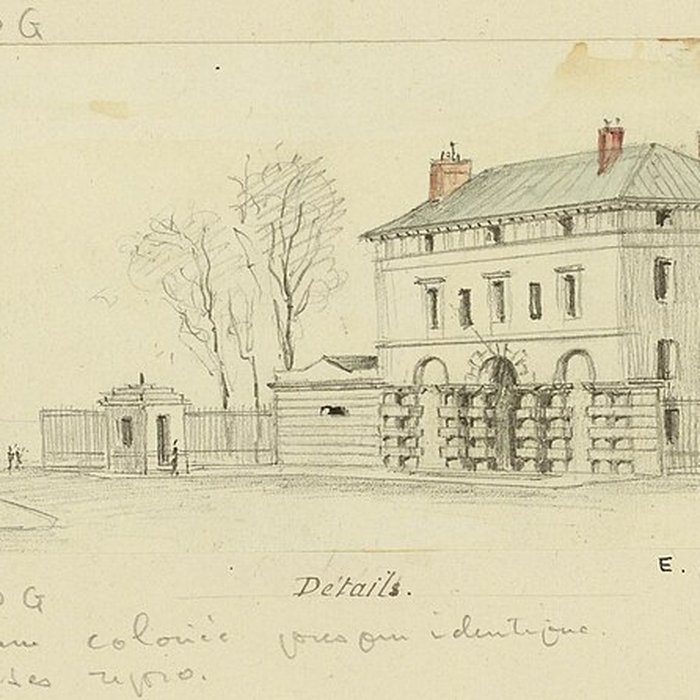 G
Détails.
E.
G
coloriée presque identique.
ses repro.